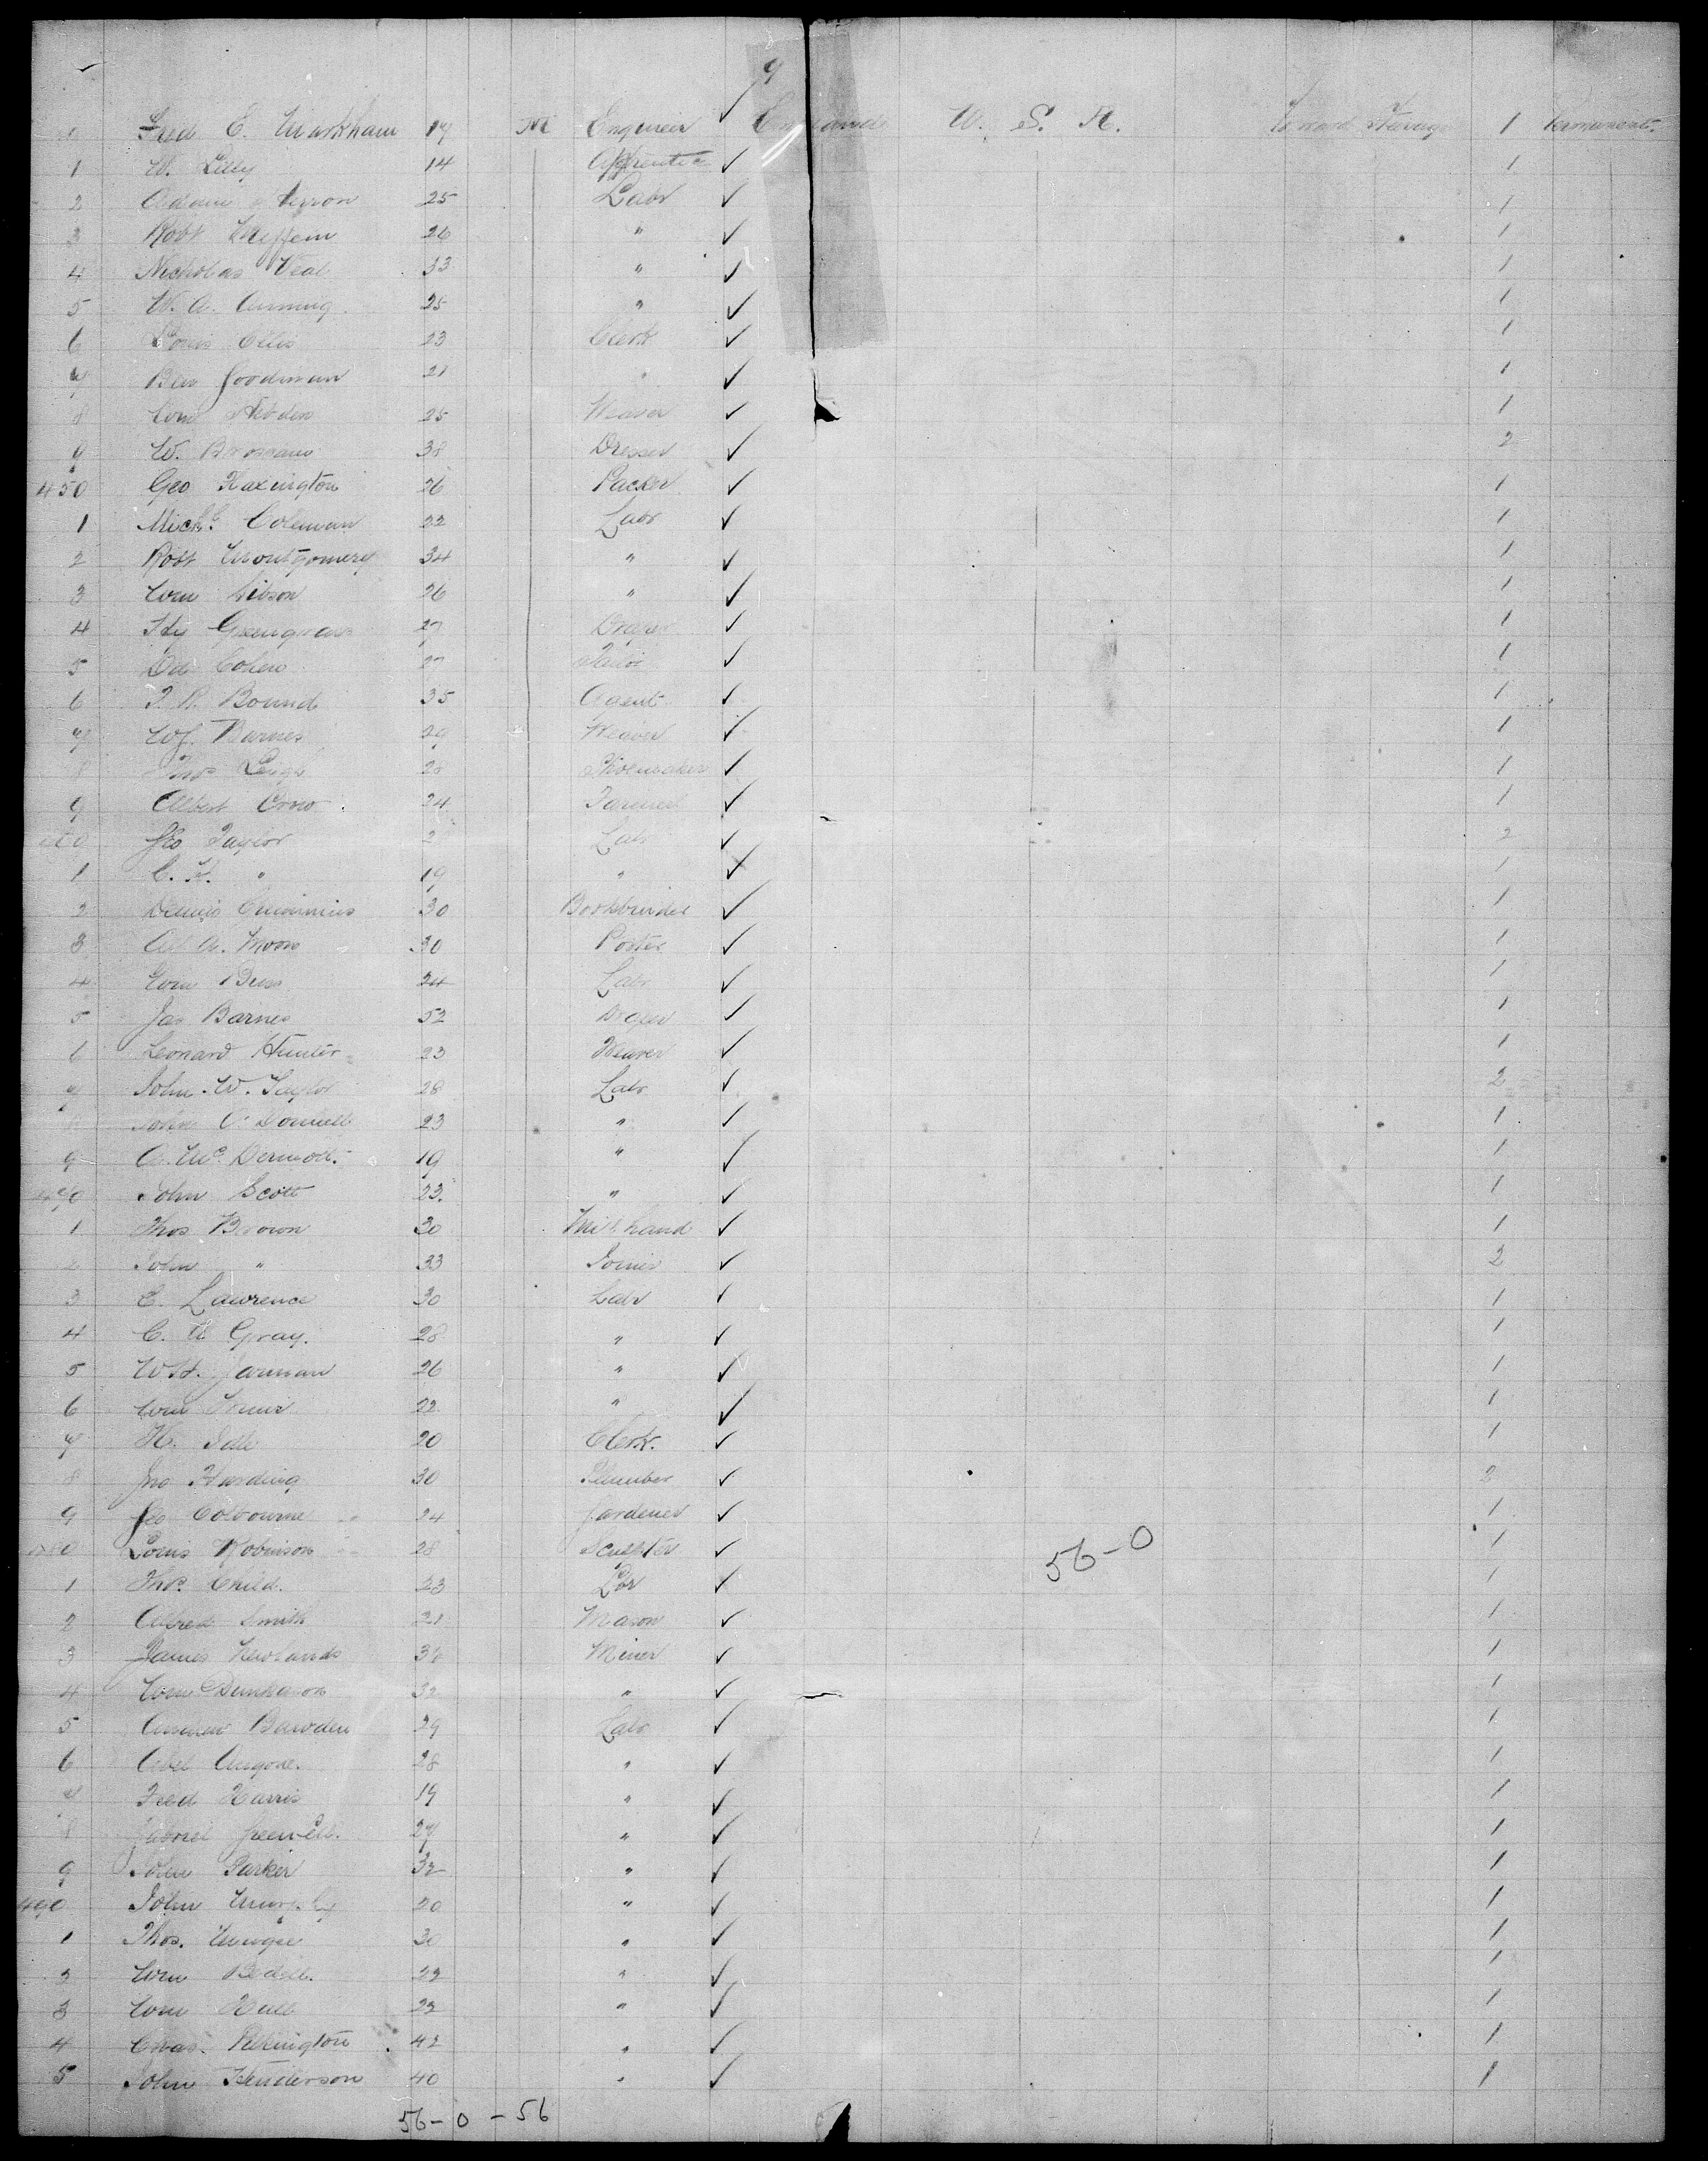 9
Fred E. Markham 17 M Engineer ✓ England U. S. A. Forward Steerage 1 Permanent.
1 W. Lilly 14 Apprentice ✓ 1
2 Adam 25 Labr ✓ 1
3 Robt 26 " ✓ 1
4 Nicholas Veal 33 " ✓ 1
5 W. A. 25 " ✓ 1
6 Louis Ellis 23 Clerk ✓ 1
7 Ben Goodman 21 " ✓ 1
8 Wm Hebden 25 Weaver ✓ 1
9 W. 38 Dresser ✓ 2
450 Geo Haxington 26 Packer ✓ 1
1 Michl. Coleman 22 Labr ✓ 1
2 Robt Montgomery 34 " ✓ 1
3 Wm Gibson 26 " ✓ 1
4 Hy Greengrass 27 Draper ✓ 1
5 Dd Cohen 27 Tailor ✓ 1
6 T. R. Bound 35 Agent ✓ 1
7 Barnes 29 Weaver ✓ 1
8 Thos Leigh 28 Shoemaker ✓ 1
9 Albert Crow 24 Farmer ✓ 1
Geo Taylor Labr ✓ 2
1 C. H. " 19 " ✓ 1
2 Dennis Cummins 30 Bookbinder ✓ 1
3 Moore 30 Porter ✓ 1
4 Wm Buss 24 Labr ✓ 1
5 Jas Barnes 52 Draper ✓ 1
6 Leonard Hunter 23 Weaver ✓ 1
7 John W. Taylor 28 Labr ✓ 2
8 John O'Donnell 23 " ✓ 1
9 A. McDermott 19 " ✓ 1
470 John Scott 23 " ✓ 1
1 Thos Brown 30 Mill hand ✓ 1
2 John " 33 Joiner ✓ 2
3 E. Lawrence 30 Labr ✓ 1
4 C. A Gray. 28 " ✓ 1
5 W. H. Jarman 26 " ✓ 1
6 Wm 22 " ✓ 1
7 H. Idle 20 Clerk. ✓ 1
8 Jno Harding 30 Plumber ✓ 2
9 Geo Colbourne 24 Gardener ✓ 1
480 Louis Robinson 28 Sculptor ✓ 1
56-0
1 Thos. Child. 23 Lbr ✓ 1
2 Alfred Smith 21 Mason ✓ 1
3 James Newlands Miner ✓ 1
4 Wm 32 " ✓ 1
5 Andrew Bawden 29 Labr ✓ 1
6 Abel Angove. 28 " ✓ 1
7 Fred Harris 19 " ✓ 1
8 Gabriel 27 " ✓ 1
9 John Parker 32 " ✓ 1
490 John 20 " ✓ 1
1 Thos. 30 " ✓ 1
2 Wm 22 " ✓ 1
3 Wm 22 " ✓ 1
4 Chas. Pilkington 42 " ✓ 1
5 John Henderson 40 " ✓ 1
56-0-56